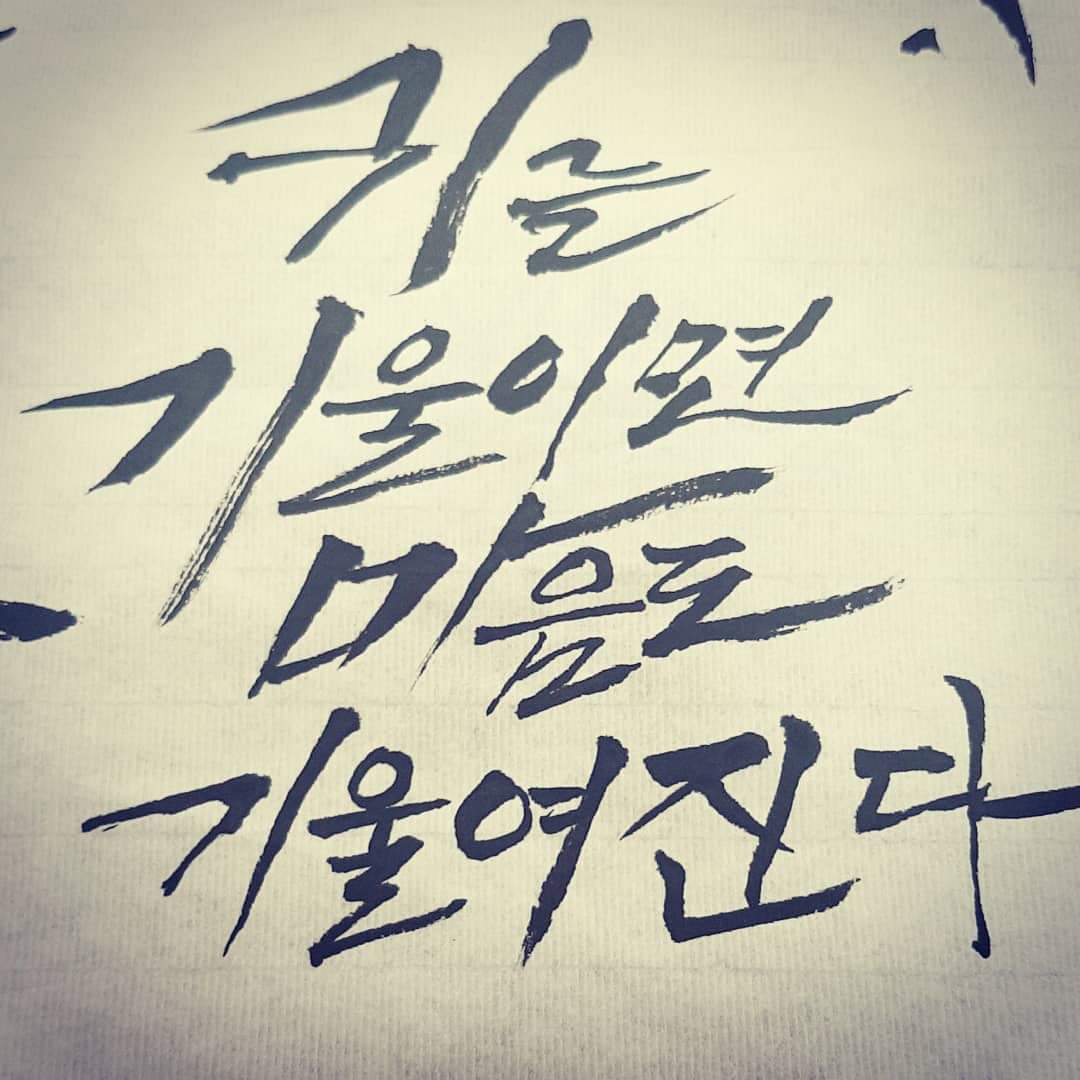 키를
기울이면
마음도
기울여진다